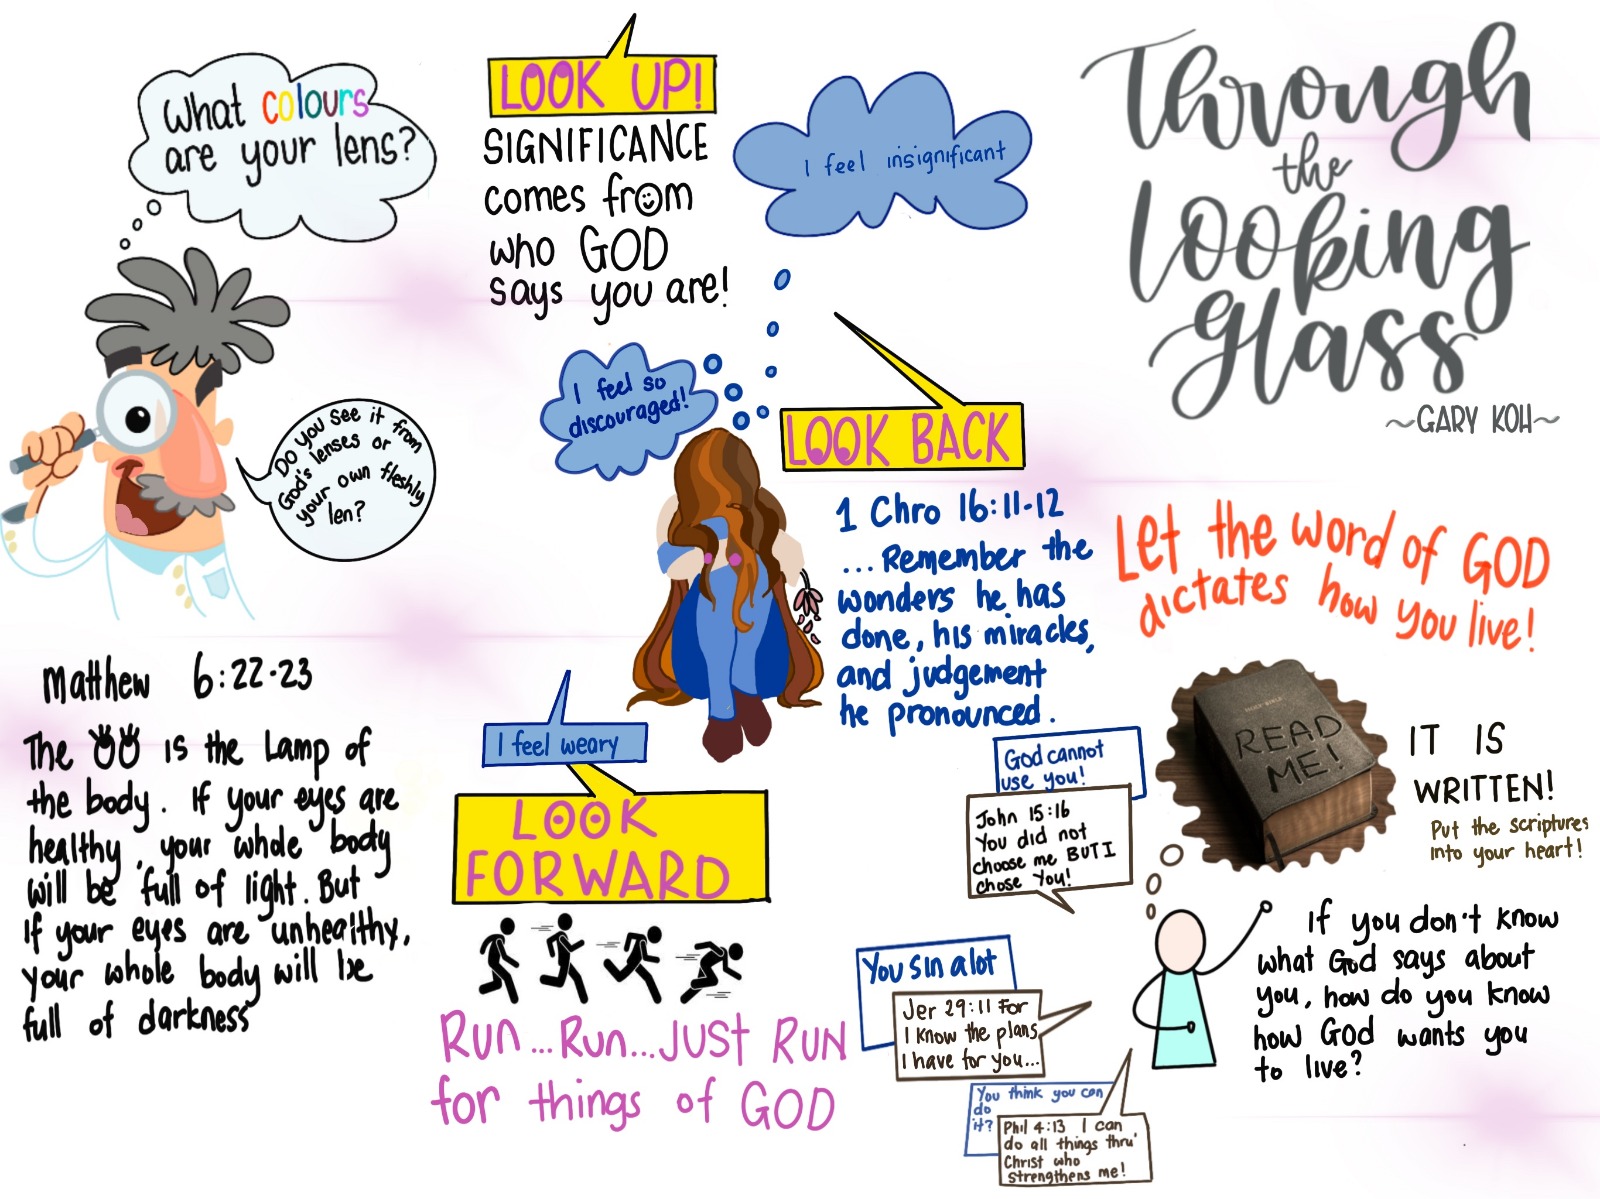 Through
the
Looking
Glass
~GARY KOH~
What colours
are your lens?
Do you see it from
God's lenses or
your own fleshly
len?
Matthew 6:22-23
The is the Lamp of
the body. If your eyes are
healthy, your whole body
will be full of light. But
if your eyes are unhealthy,
your whole body will be
full of darkness
LOOK UP!
SIGNIFICANCE
comes from
who GOD
says you are!
I feel insignificant
I feel so
discouraged!
LOOK BACK
1 Chro 16:11-12
...Remember the
wonders he has
done, his miracles,
and judgement
he pronounced.
I feel weary
LOOK
FORWARD
Run...Run...JUST RUN
for things of GOD
Let the word of GOD
dictates how you live!
HOLY BIBLE
READ
ME!
IT IS
WRITTEN!
Put the scriptures
into your heart!
God cannot
use you!
John 15:16
You did not
choose me BUT I
chose You!
You sin a lot
Jer 29:11 For
I know the plans
I have for you...
You think you can
do
it?
Phil 4:13 I can
do all things thru'
Christ who
strengthens me!
If you don't know
what God says about
you, how do you know
how God wants you
to live?